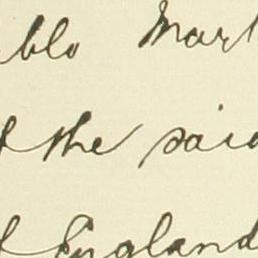 blo Mart
f the said
f England